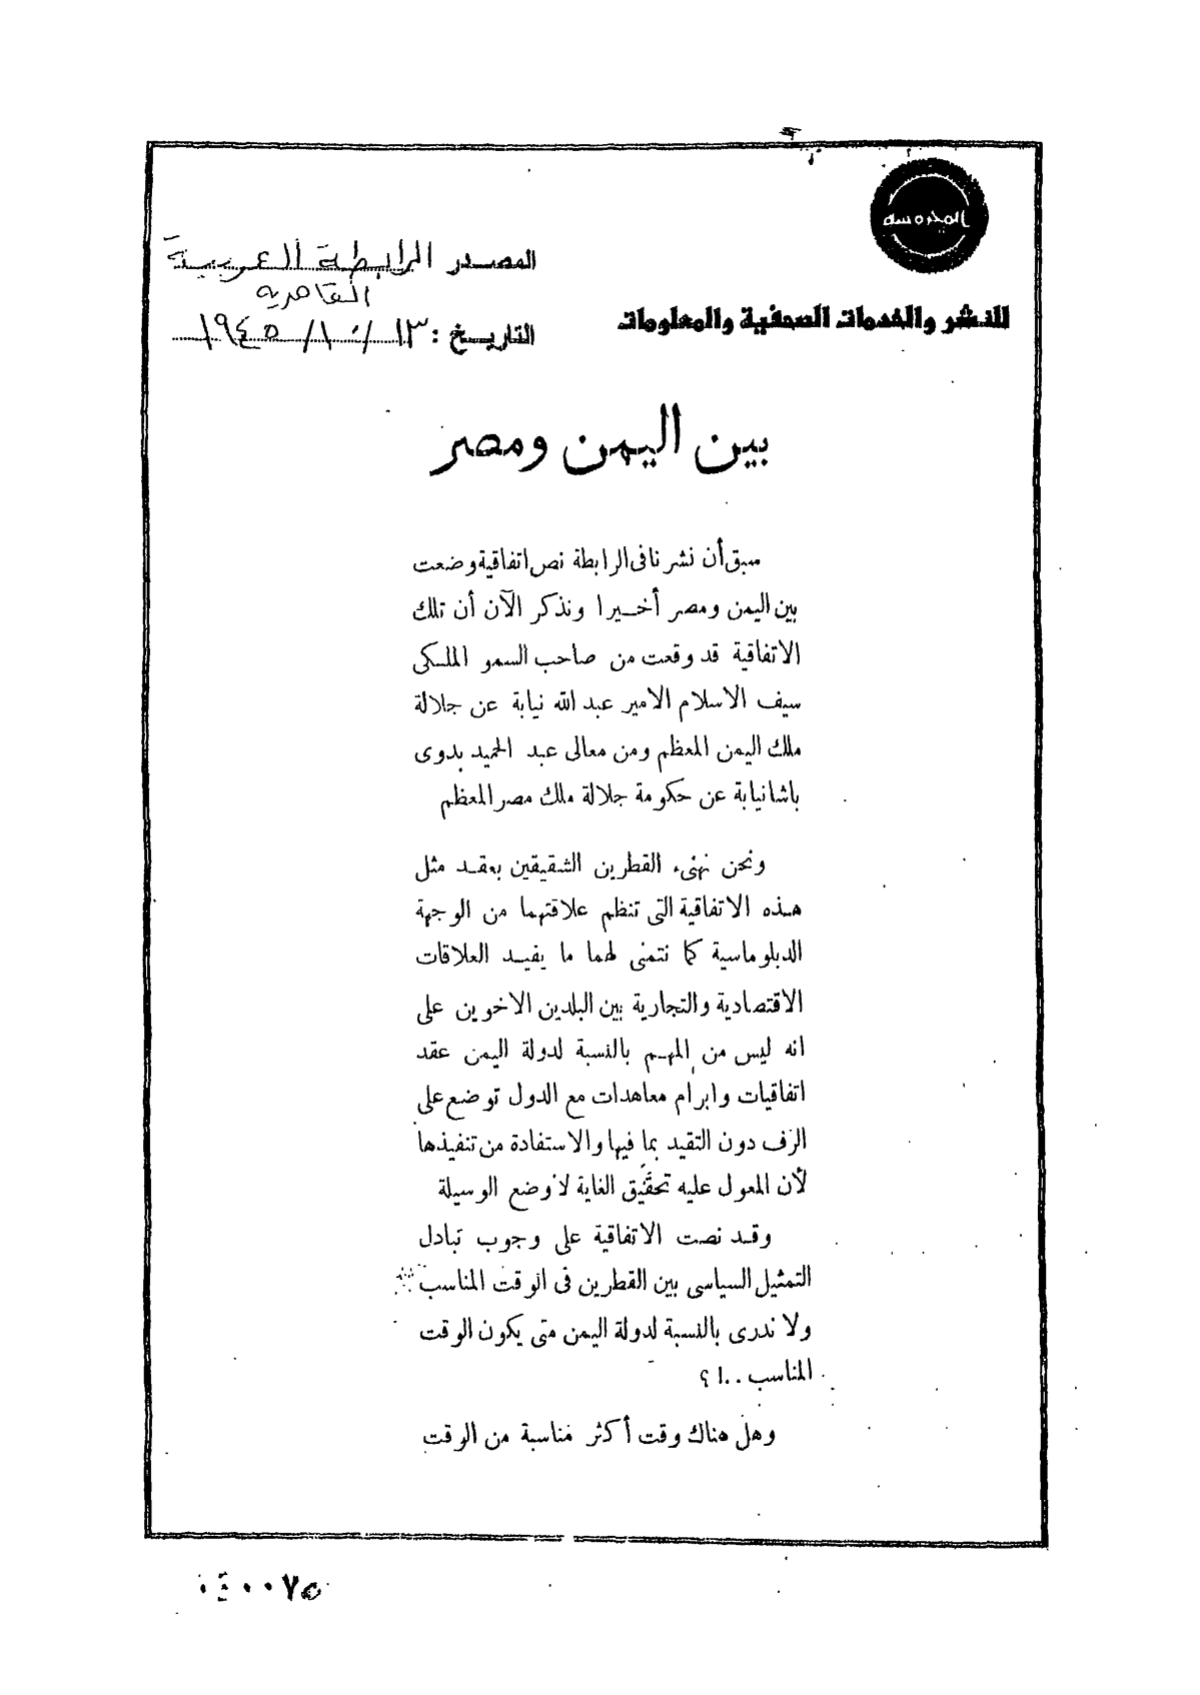 المحروسه
للنشر والخدمات الصحفية والمعلومات
المصدر الرابطة العربية
القاهرية
التاريخ : ١٣/١٠/١٩٤٥
بين اليمن ومصر
سبق أن نشرنا فى الرابطة نص اتفاقية وضعت
بين اليمن ومصر أخيرا ونذكر الآن أن تلك
الاتفاقية قد وقعت من صاحب السمو الملكى
سيف الاسلام الامير عبد الله نيابة عن جلالة
ملك اليمن المعظم ومن معالى عبد الحميد بدوى
باشا نيابة عن حكومة جلالة ملك مصر المعظم
ونحن نهنىء القطرين الشقيقين بعقد مثل
هذه الاتفاقية التى تنظم علاقتهما من الوجهة
الدبلوماسية كما نتمنى لهما ما يفيد العلاقات
الاقتصادية والتجارية بين البلدين الاخوين على
انه ليس من المهم بالنسبة لدولة اليمن عقد
اتفاقيات وابرام معاهدات مع الدول توضع على
الرف دون التقيد بما فيها والاستفادة من تنفيذها
لأن المعول عليه تحقيق الغاية لا وضع الوسيلة
وقد نصت الاتفاقية على وجوب تبادل
التمثيل السياسى بين القطرين فى الوقت المناسب
ولا ندرى بالنسبة لدولة اليمن متى يكون الوقت
المناسب ..!؟
وهل هناك وقت أكثر مناسبة من الوقت